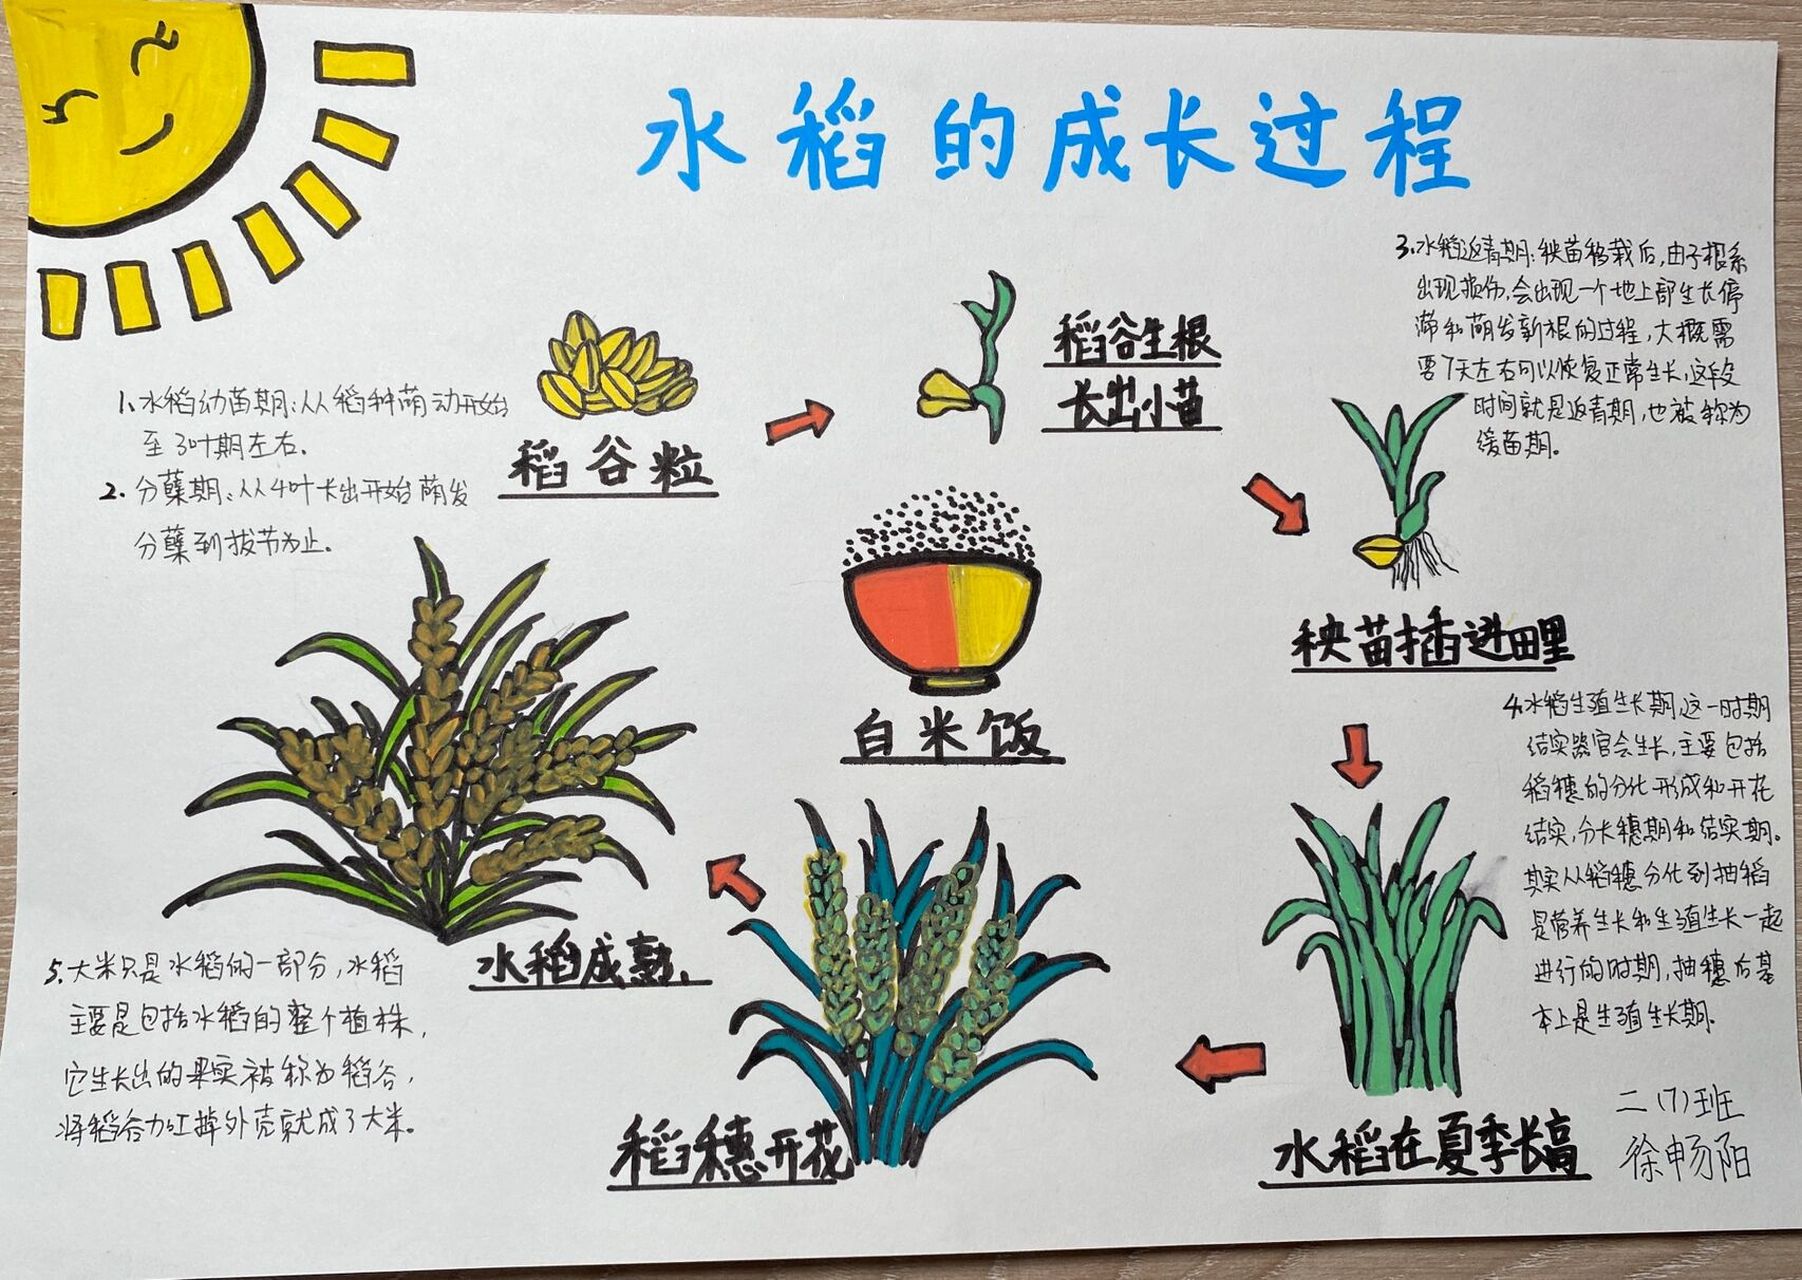 水稻的成长过程
稻谷粒
稻谷生根
长出小苗
3.水稻返青期:秧苗移栽后,由于根系
出现损伤,会出现一个地上部生长停
滞和萌发新根的过程,大概需
要7天左右可以恢复正常生长,这段
时间就是返青期,也被称为
缓苗期。
1.水稻幼苗期:从稻种萌动开始
至3叶期左右。
2.分蘖期:从4叶长出开始萌发
分蘖到拔节为止。
秧苗插进田里
白米饭
4.水稻生殖生长期,这一时期
结实器官会生长,主要包括
稻穗的分化形成和开花
结实,分长穗期和结实期。
其实从稻穗分化到抽稻
是营养生长和生殖生长一起
进行的时期,抽穗后基
本上是生殖生长期.
水稻成熟.
5.大米只是水稻的一部分,水稻
主要是包括水稻的整个植株,
它生长出的果实被称为稻谷,
将稻谷加工掉外壳就成了大米。
稻穗开花
水稻在夏季长高
二(7)班
徐畅阳